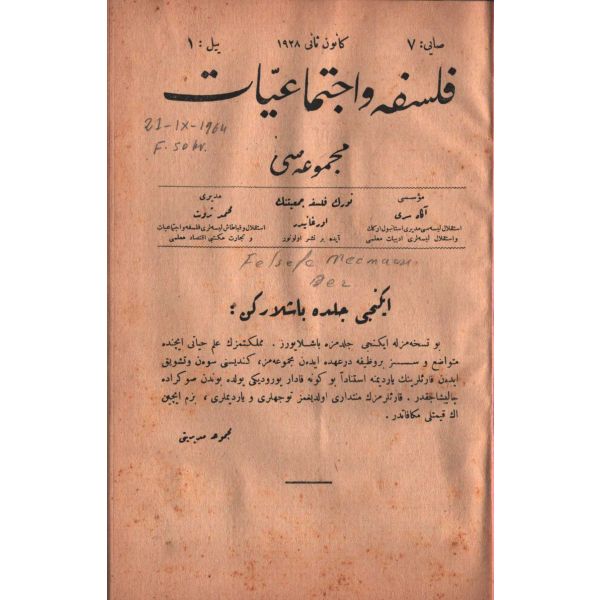 صايى: ٧    كانون ثانى ١٩٢٨    ييل: ١
فلسفه و اجتماعيّات
21-IX-1964
F. 50 kr.
مجموعه سى
مؤسسى
آگاه سرى
استقلال ليسه سى مديرى استانبول اركك
و استقلال ليسه لرى ادبيات معلمى
تورك فلسفه جمعيتنك
اورغانيدر
آيده بر نشر اولونور
مديرى
محمد ثروت
استقلال و قباطاش ليسه لرى فلسفه و اجتماعيات
و تجارت مكتبى اقتصاد معلمى
Felsefe Mecmuası
ايكنجى جلده باشلاركن:
بو نسخه مزله ايكنجى جلدمزه باشلايورز. مملكتمزك علم حياتى ايچنده
متواضع و سسز بر وظيفه درعهده ايدن مجموعه مز، كنديسنى سوەن و تشويق
ايدن قارئلرينك يارديمنه استناداً بو كونه قادار يوروديكى يولده بوندن صوكراده
چاليشاجقدر. قارئلرمزك منتدارى اولديغمز توجهلرى و يارديملرى، بزم ايچون
اك قيمتلى مكافاتدر.
مجموعه مديريتى